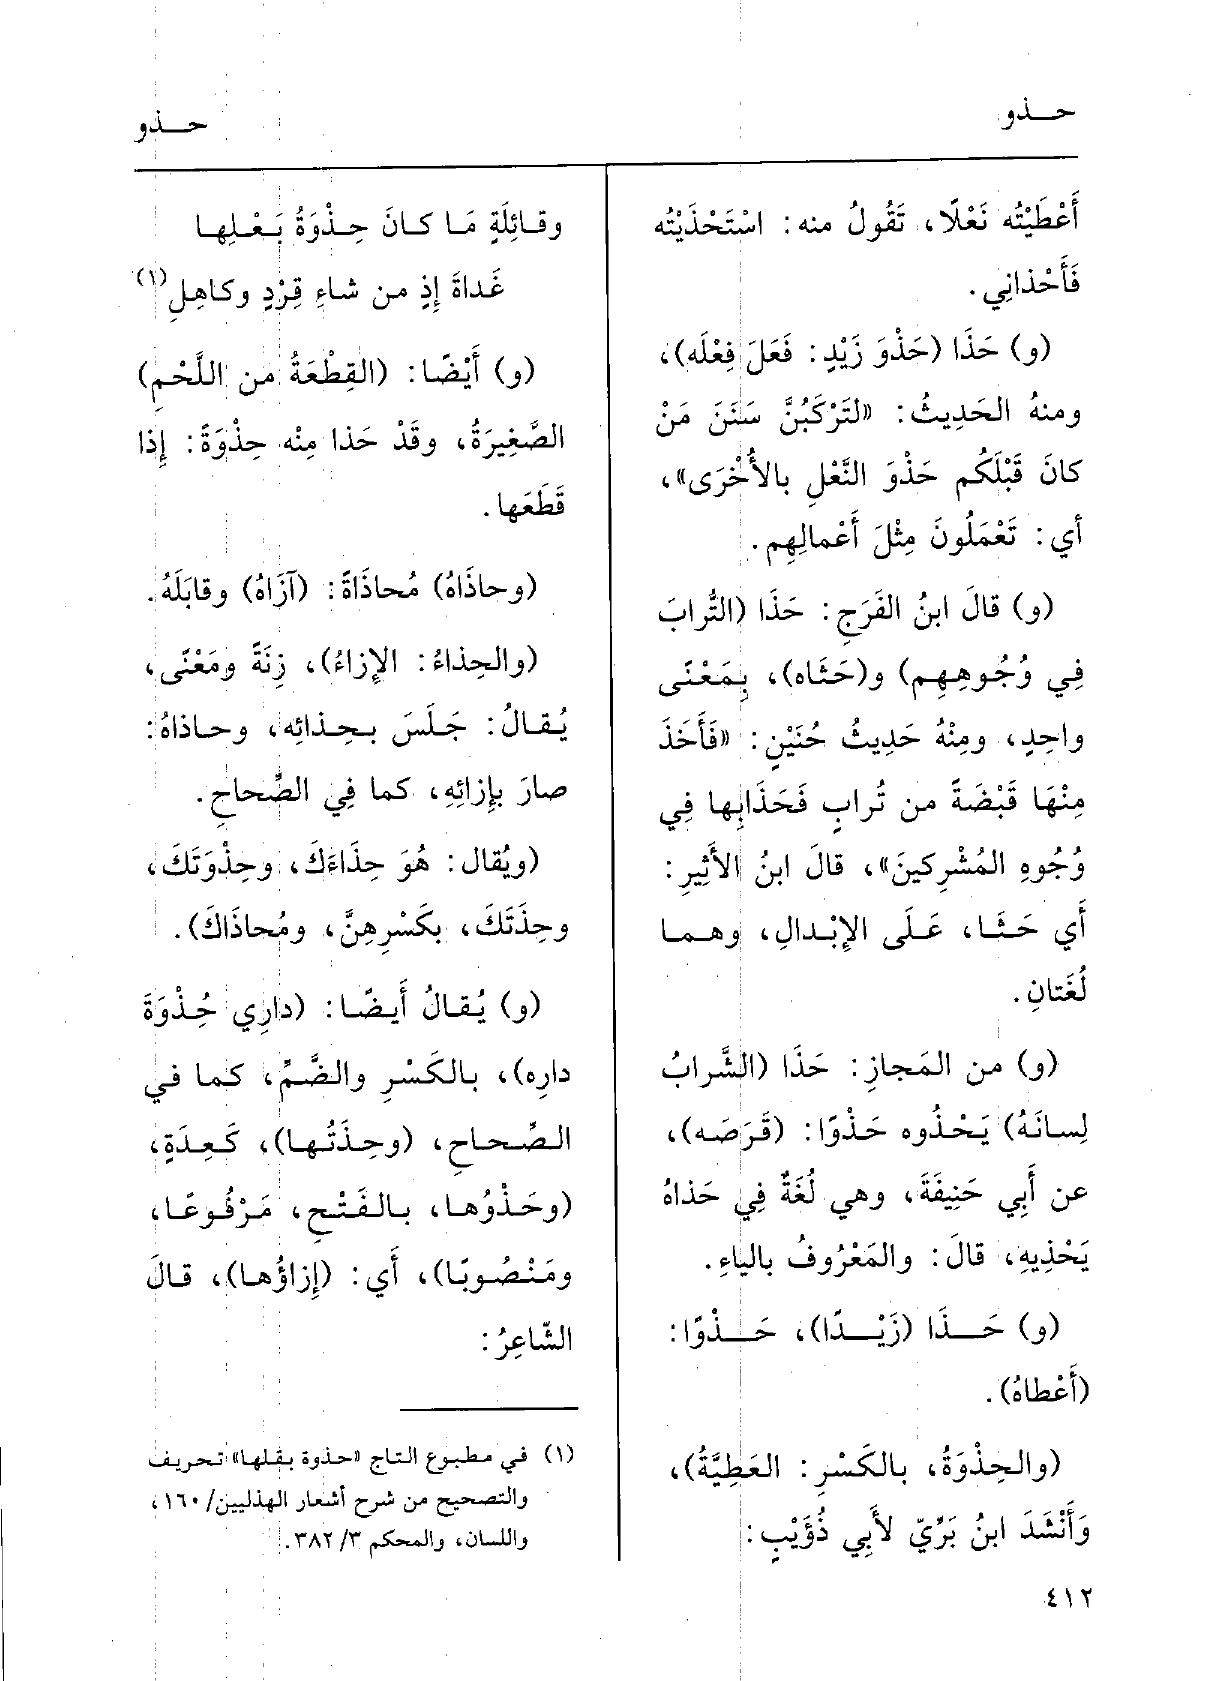 حـــذو
حـــذو
أَعْطَيْتُه نَعْلًا، تَقُولُ منه: اسْتَحْذَيْتُه
فَأَحْذانِي.
(و) حَذَا (حَذْوَ زَيْدٍ: فَعَلَ فِعْلَه)،
ومنهُ الحَدِيثُ: «لتَرْكَبُنَّ سَنَنَ مَنْ
كانَ قَبْلَكُم حَذْوَ النَّعْلِ بالأُخْرَى»،
أي: تَعْمَلُونَ مِثْلَ أَعْمالِهِم.
(و) قالَ ابنُ الفَرَجِ: حَذَا (التُّرابَ
فِي وُجُوهِهِم) و(حَثَاه)، بِمَعْنًى
واحِدٍ، ومِنْهُ حَدِيثُ حُنَيْنٍ: «فَأَخَذَ
مِنْهَا قَبْضَةً من تُرابٍ فَحَذَابِها فِي
وُجُوهِ المُشْرِكينَ»، قالَ ابنُ الأَثِيرِ:
أَي حَـثَـا، عَـلَـى الإِبْـدالِ، وهـمـا
لُغَتانِ.
(و) من المَجازِ: حَذَا (الشَّرابُ
لِسانَهُ) يَحْذُوه حَذْوًا: (قَرَصَه)،
عن أَبِي حَنِيفَةَ، وهي لُغَةٌ فِي حَذاهُ
يَحْذِيهِ، قالَ: والمَعْرُوفُ بالياءِ.
(و) حَـــذَا (زَيْـــدًا)، حَـــذْوًا:
(أَعْطاهُ).
(والحِذْوَةُ، بالكَسْرِ: العَطِيَّةُ)،
وَأَنْشَدَ ابنُ بَرِّيّ لأَبِي ذُؤَيْبٍ:
وقـائِلَةٍ مَـا كـانَ حِـذْوَةُ بَـعْـلِهـا
غَداةَ إِذٍ من شاءِ قِرْدٍ وكاهِلِ(١)
(و) أَيْضًـا: (القِطْعَةُ من اللَّحْمِ)
الصَّغِيرَةُ، وقَدْ حَذا مِنْه حِذْوَةً: إِذا
قَطَعَها.
(وحاذَاهُ) مُحاذَاةً: (آزَاهُ) وقابَلَهُ.
(والحِذاءُ: الإِزاءُ)، زِنَةً ومَعْنًى،
يُـقـالُ: جَـلَـسَ بـحِـذائِه، وحـاذاهُ:
صارَ بإِزائِهِ، كما فِي الصِّحاحِ.
(ويُقال: هُوَ حِذَاءَكَ، وحِذْوَتَكَ،
وحِذَتَكَ، بكَسْرِهِنَّ، ومُحاذَاكَ).
(و) يُـقـالُ أَيـضًـا: (دارِي حُِذْوَةَ
دارِه)، بـالكَسْرِ والضَّمِّ، كمـا فـي
الصِّـحـاحِ، (وحِـذَتُـهـا)، كَـعِـدَةٍ،
(وحَـذْوُهـا، بـالـفَـتْـحِ، مَـرْفُـوعًـا،
ومَـنْـصُـوبًـا)، أَي: (إِزاؤُهـا)، قـالَ
الشّاعِرُ:
(١) في مطبوع التاج «حذوة بقلها» تحريف
والتصحيح من شرح أشعار الهذليين/١٦٠،
واللسان، والمحكم ٣/ ٣٨٢.
٤١٢